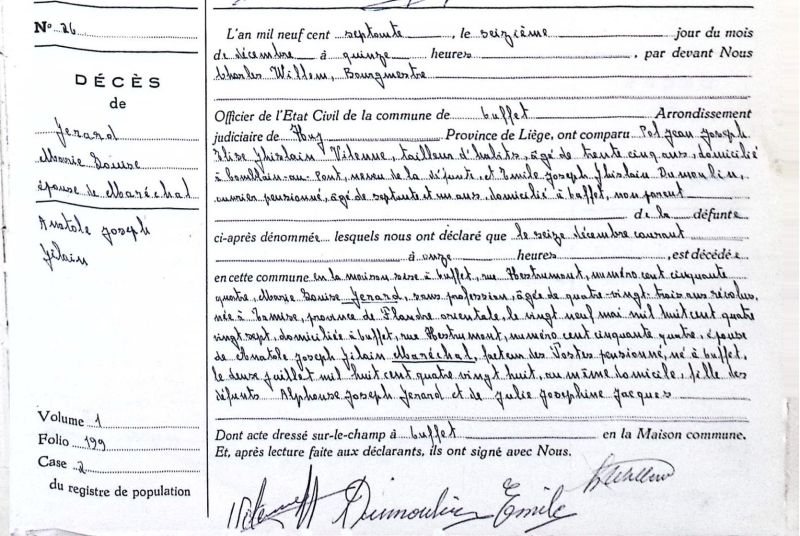 N° 26
DÉCÈS
de
Jerard
Marie Louise
épouse de Maréchal
Anatole Joseph
Jilain
Volume 1
Folio 199
Case 2
du registre de population
L'an mil neuf cent septante, le seizième jour du mois
de décembre à quinze heures, par devant Nous
Charles Willem, Bourgmestre
Officier de l'Etat Civil de la commune de Buffet Arrondissement
judiciaire de Huy Province de Liège, ont comparu Pol Jean Joseph
Elise Ghislain Vilenne, tailleur d'habits, âgé de trente cinq ans, domicilié
à Comblain-au-Pont, neveu de la défunte, et Emile Joseph Ghislain Dumoulin,
ouvrier pensionné, âgé de septante et un ans, domicilié à Buffet, non parent
de la défunte
ci-après dénommée lesquels nous ont déclaré que le seize décembre courant
à onze heures, est décédée
en cette commune en la maison sise à Buffet, rue Hestrumont, numéro cent cinquante
quatre, Marie Louise Jerard, sans profession, âgée de quatre-vingt-trois ans révolus,
née à Tamise, province de Flandre orientale, le vingt neuf mai mil huit cent quatre
vingt sept, domiciliée à Buffet, rue Hestrumont, numéro cent cinquante quatre, épouse
de Anatole Joseph Jilain Maréchal, facteur des Postes pensionné, né à Buffet,
le deux juillet mil huit cent quatre vingt huit, au même domicile, fille des
défunts Alphonse Joseph Jerard et de Julie Josephine Jacques
Dont acte dressé sur-le-champ à Buffet en la Maison commune.
Et, après lecture faite aux déclarants, ils ont signé avec Nous.
Dumoulin Emile